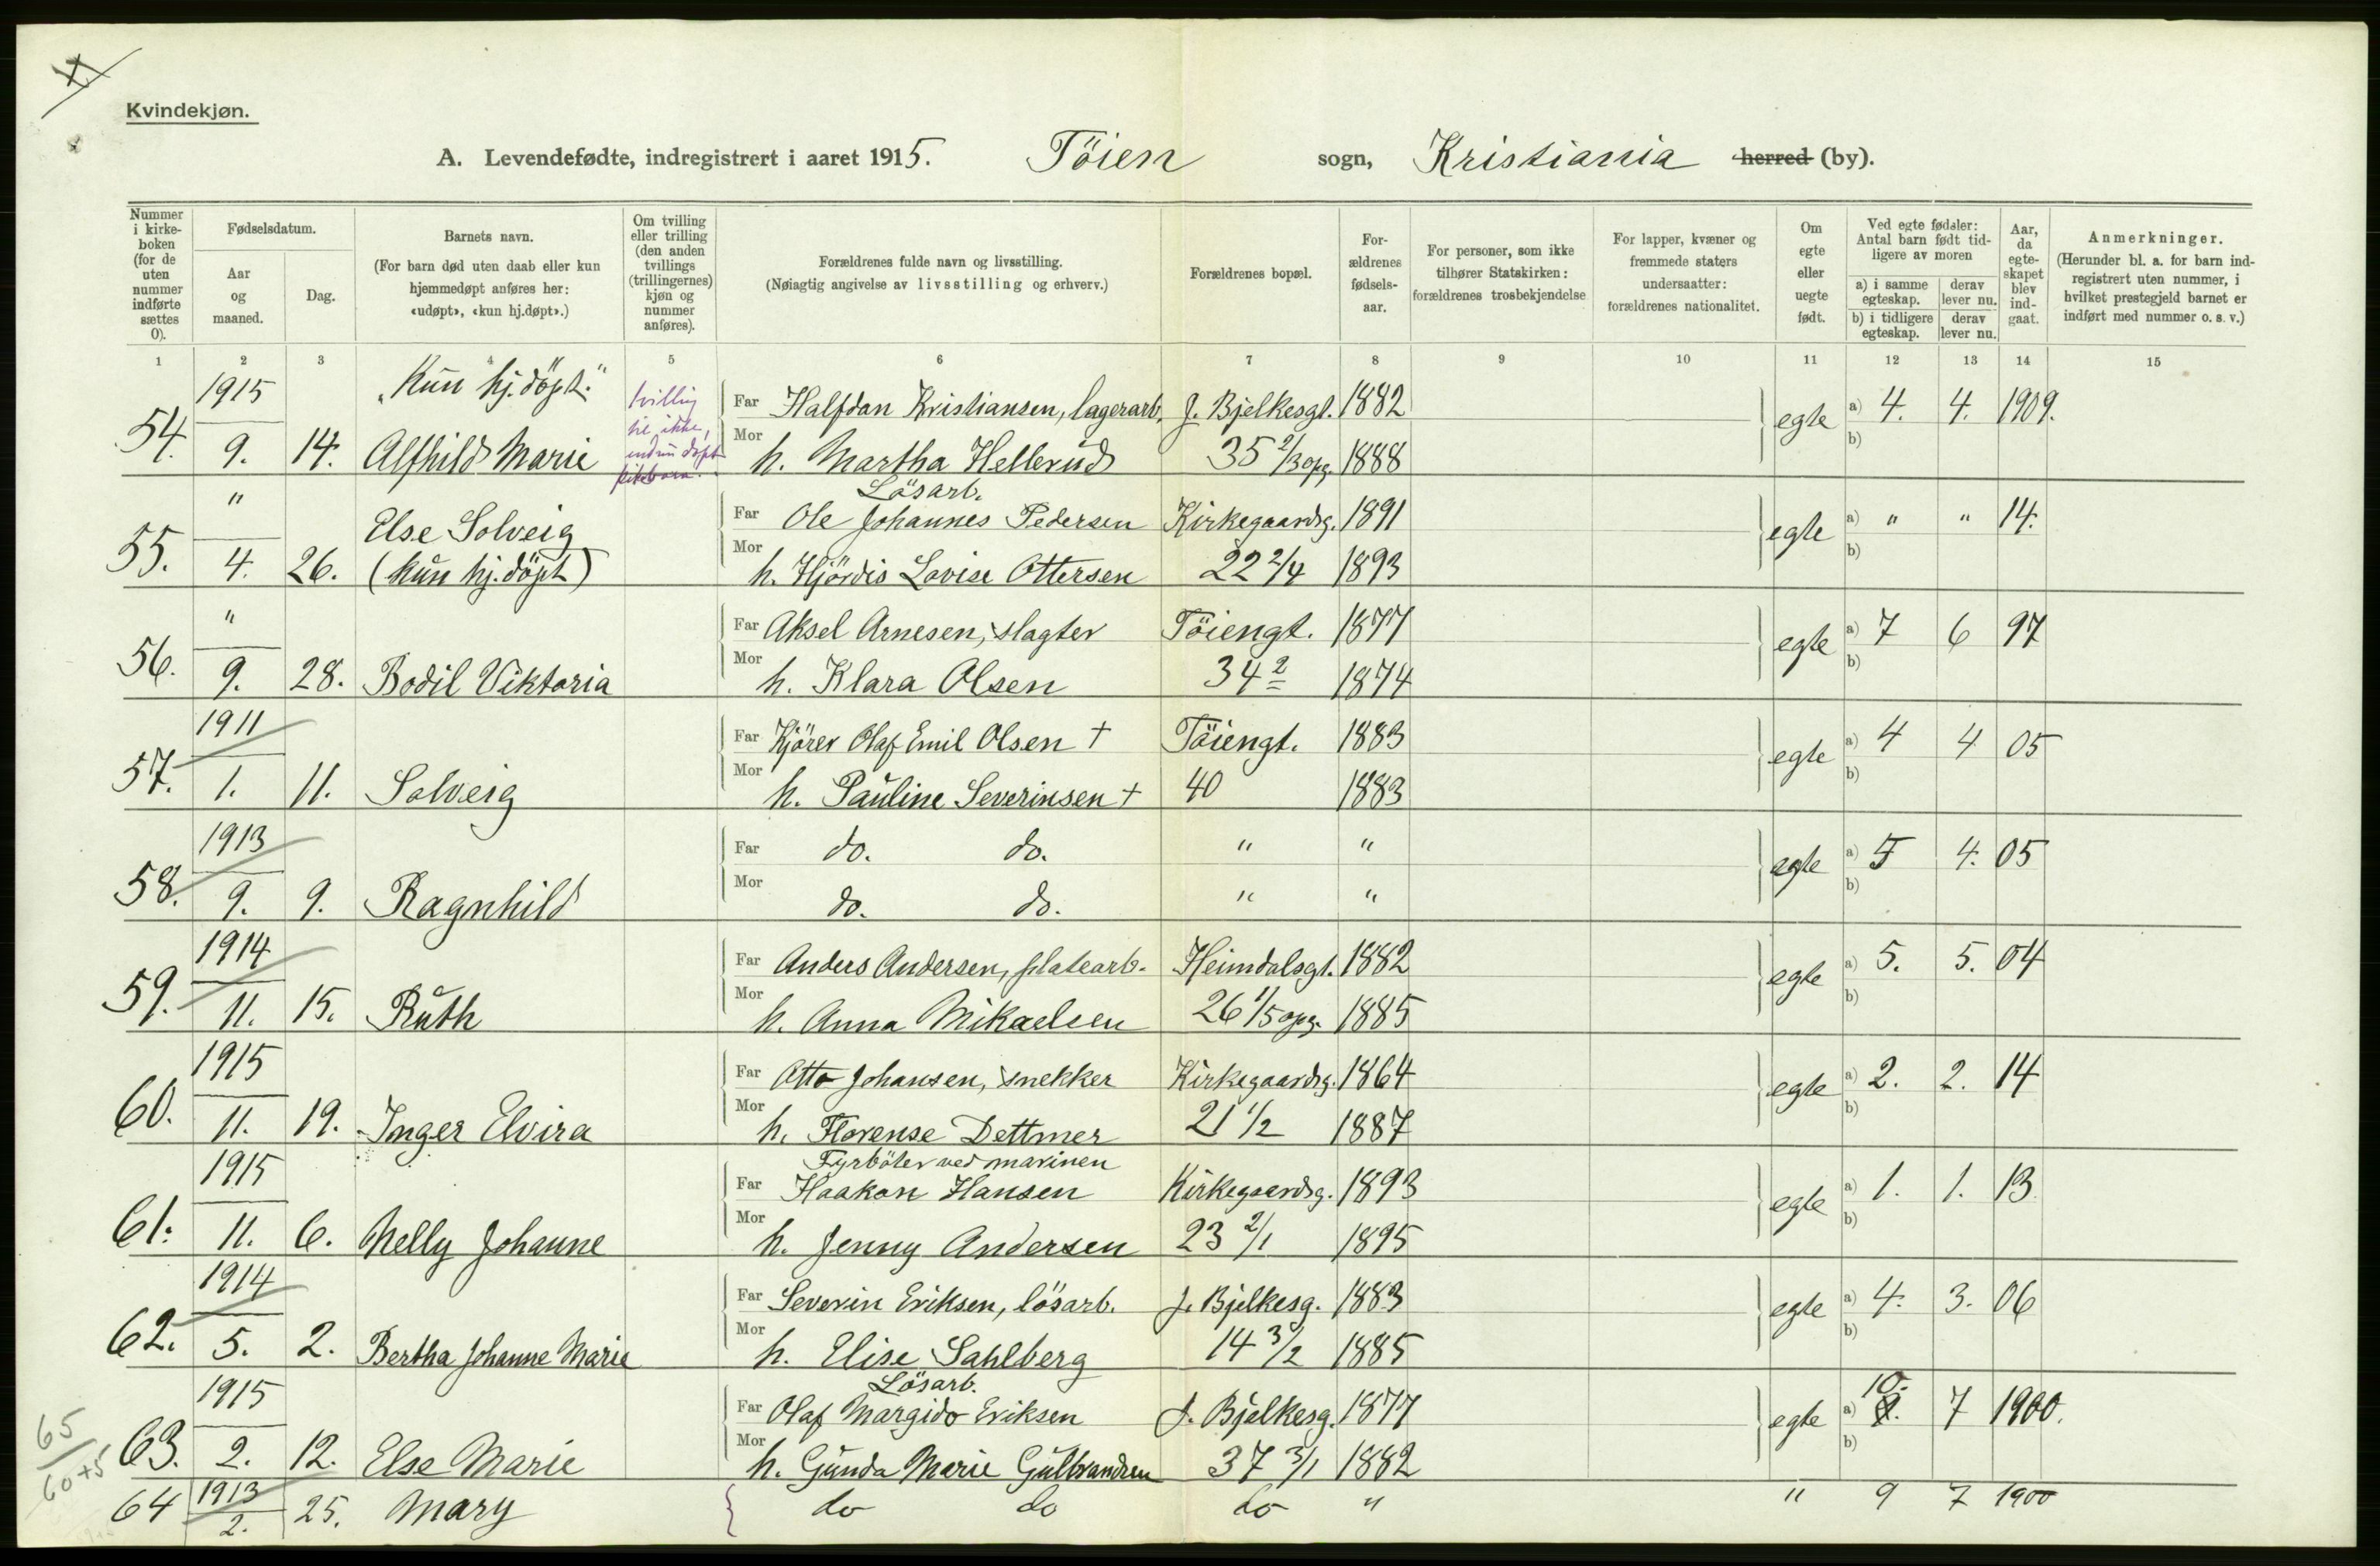 Kvindekjøn.
A. Levendefødte, indregistrert i aaret 1915. Töien sogn, Kristiania herred (by).
Nummer i kirkeboken (for de uten nummer indførte sættes 0).
Fødselsdatum.
Aar og maaned.
Dag.
Barnets navn.
(For barn død uten daab eller kun hjemmedøpt anføres her: «udøpt», «kun hj.døpt».)
Om tvilling eller trilling (den anden tvillings (trillingernes) kjøn og nummer anføres).
Forældrenes fulde navn og livsstilling.
(Nøiagtig angivelse av livsstilling og erhverv.)
Forældrenes bopæl.
Forældrenes fødselsaar.
For personer, som ikke tilhører Statskirken: forældrenes trosbekjendelse
For lapper, kvæner og fremmede staters undersaatter: forældrenes nationalitet.
Om egte eller uegte født.
Ved egte fødsler: Antal barn født tidligere av moren
a) i samme egteskap.
derav lever nu.
b) i tidligere egteskap.
derav lever nu.
Aar, da egteskapet blev indgaat.
Anmerkninger.
(Herunder bl. a. for barn indregistrert uten nummer, i hvilket prestegjeld barnet er indført med nummer o. s. v.)
1 2 3 4 5 6 7 8 9 10 11 12 13 14 15
1915 „Kun hj. döpt." tvilling Far Halfdan Kristiansen, lagerarb. J. Bjelkesgt. 1882 egte a) 4. 4. 1909.
54. 9. 14. Alfhild Marie Mor h. Martha Hellerud 35 2/3 opg. 1888 b)
til ikke, endnu döpt pikebarn.
Lösarb.
" Else Solveig Far Ole Johannes Pedersen Kirkegaardsg. 1891 egte a) " " 14.
55. 4. 26. (kun hj. döpt) Mor h. Hjördis Lovise Ottersen 22 2/4 1893 b)
" Far Aksel Arnesen, slagter Töiengt. 1877 egte a) 7 6 97
56. 9. 28. Bodil Viktoria Mor h. Klara Olsen 34 2 1874 b)
1911 Far Kjörer Olaf Emil Olsen + Töiengt. 1883 egte a) 4 4 05
57. 1. 11. Solveig Mor h. Pauline Severinsen + 40 1883 b)
1913 Far do. do. " " egte a) 5 4. 05
58. 9. 9. Ragnhild Mor do. do. " " b)
1914 Far Anders Andersen, platearb. Heimdalsgt. 1882 egte a) 5. 5. 04
59. 11. 15. Ruth Mor h. Anna Mikaelsen 26 1/5 opg. 1885 b)
1915 Far Otto Johansen, snekker Kirkegaardsg. 1864 egte a) 2. 2. 14
60. 11. 19. Inger Elvira Mor h. Florense Dettmer 21 1/2 1887 b)
Fyrböter ved marinen
1915 Far Haakon Hansen Kirkegaardsg. 1893 egte a) 1. 1. 13
61. 11. 6. Nelly Johanne Mor h. Jenny Andersen 23 2/1 1895 b)
1914 Far Severin Eriksen, lösarb. J. Bjelkesg. 1883 egte a) 4. 3. 06
62. 5. 2. Bertha Johanne Marie Mor h. Elise Sahlberg 14 3/2 1885 b)
Lösarb.
1915 Far Olaf Margido Eriksen J. Bjelkesg. 1877 egte a) 10. 7 1900.
63. 2. 12. Else Marie Mor h. Gunda Marie Gulbrandsen 37 3/1 1882 b)
65
60+5
1913
64 2. 25. Mary do do do " " 9 7 1900